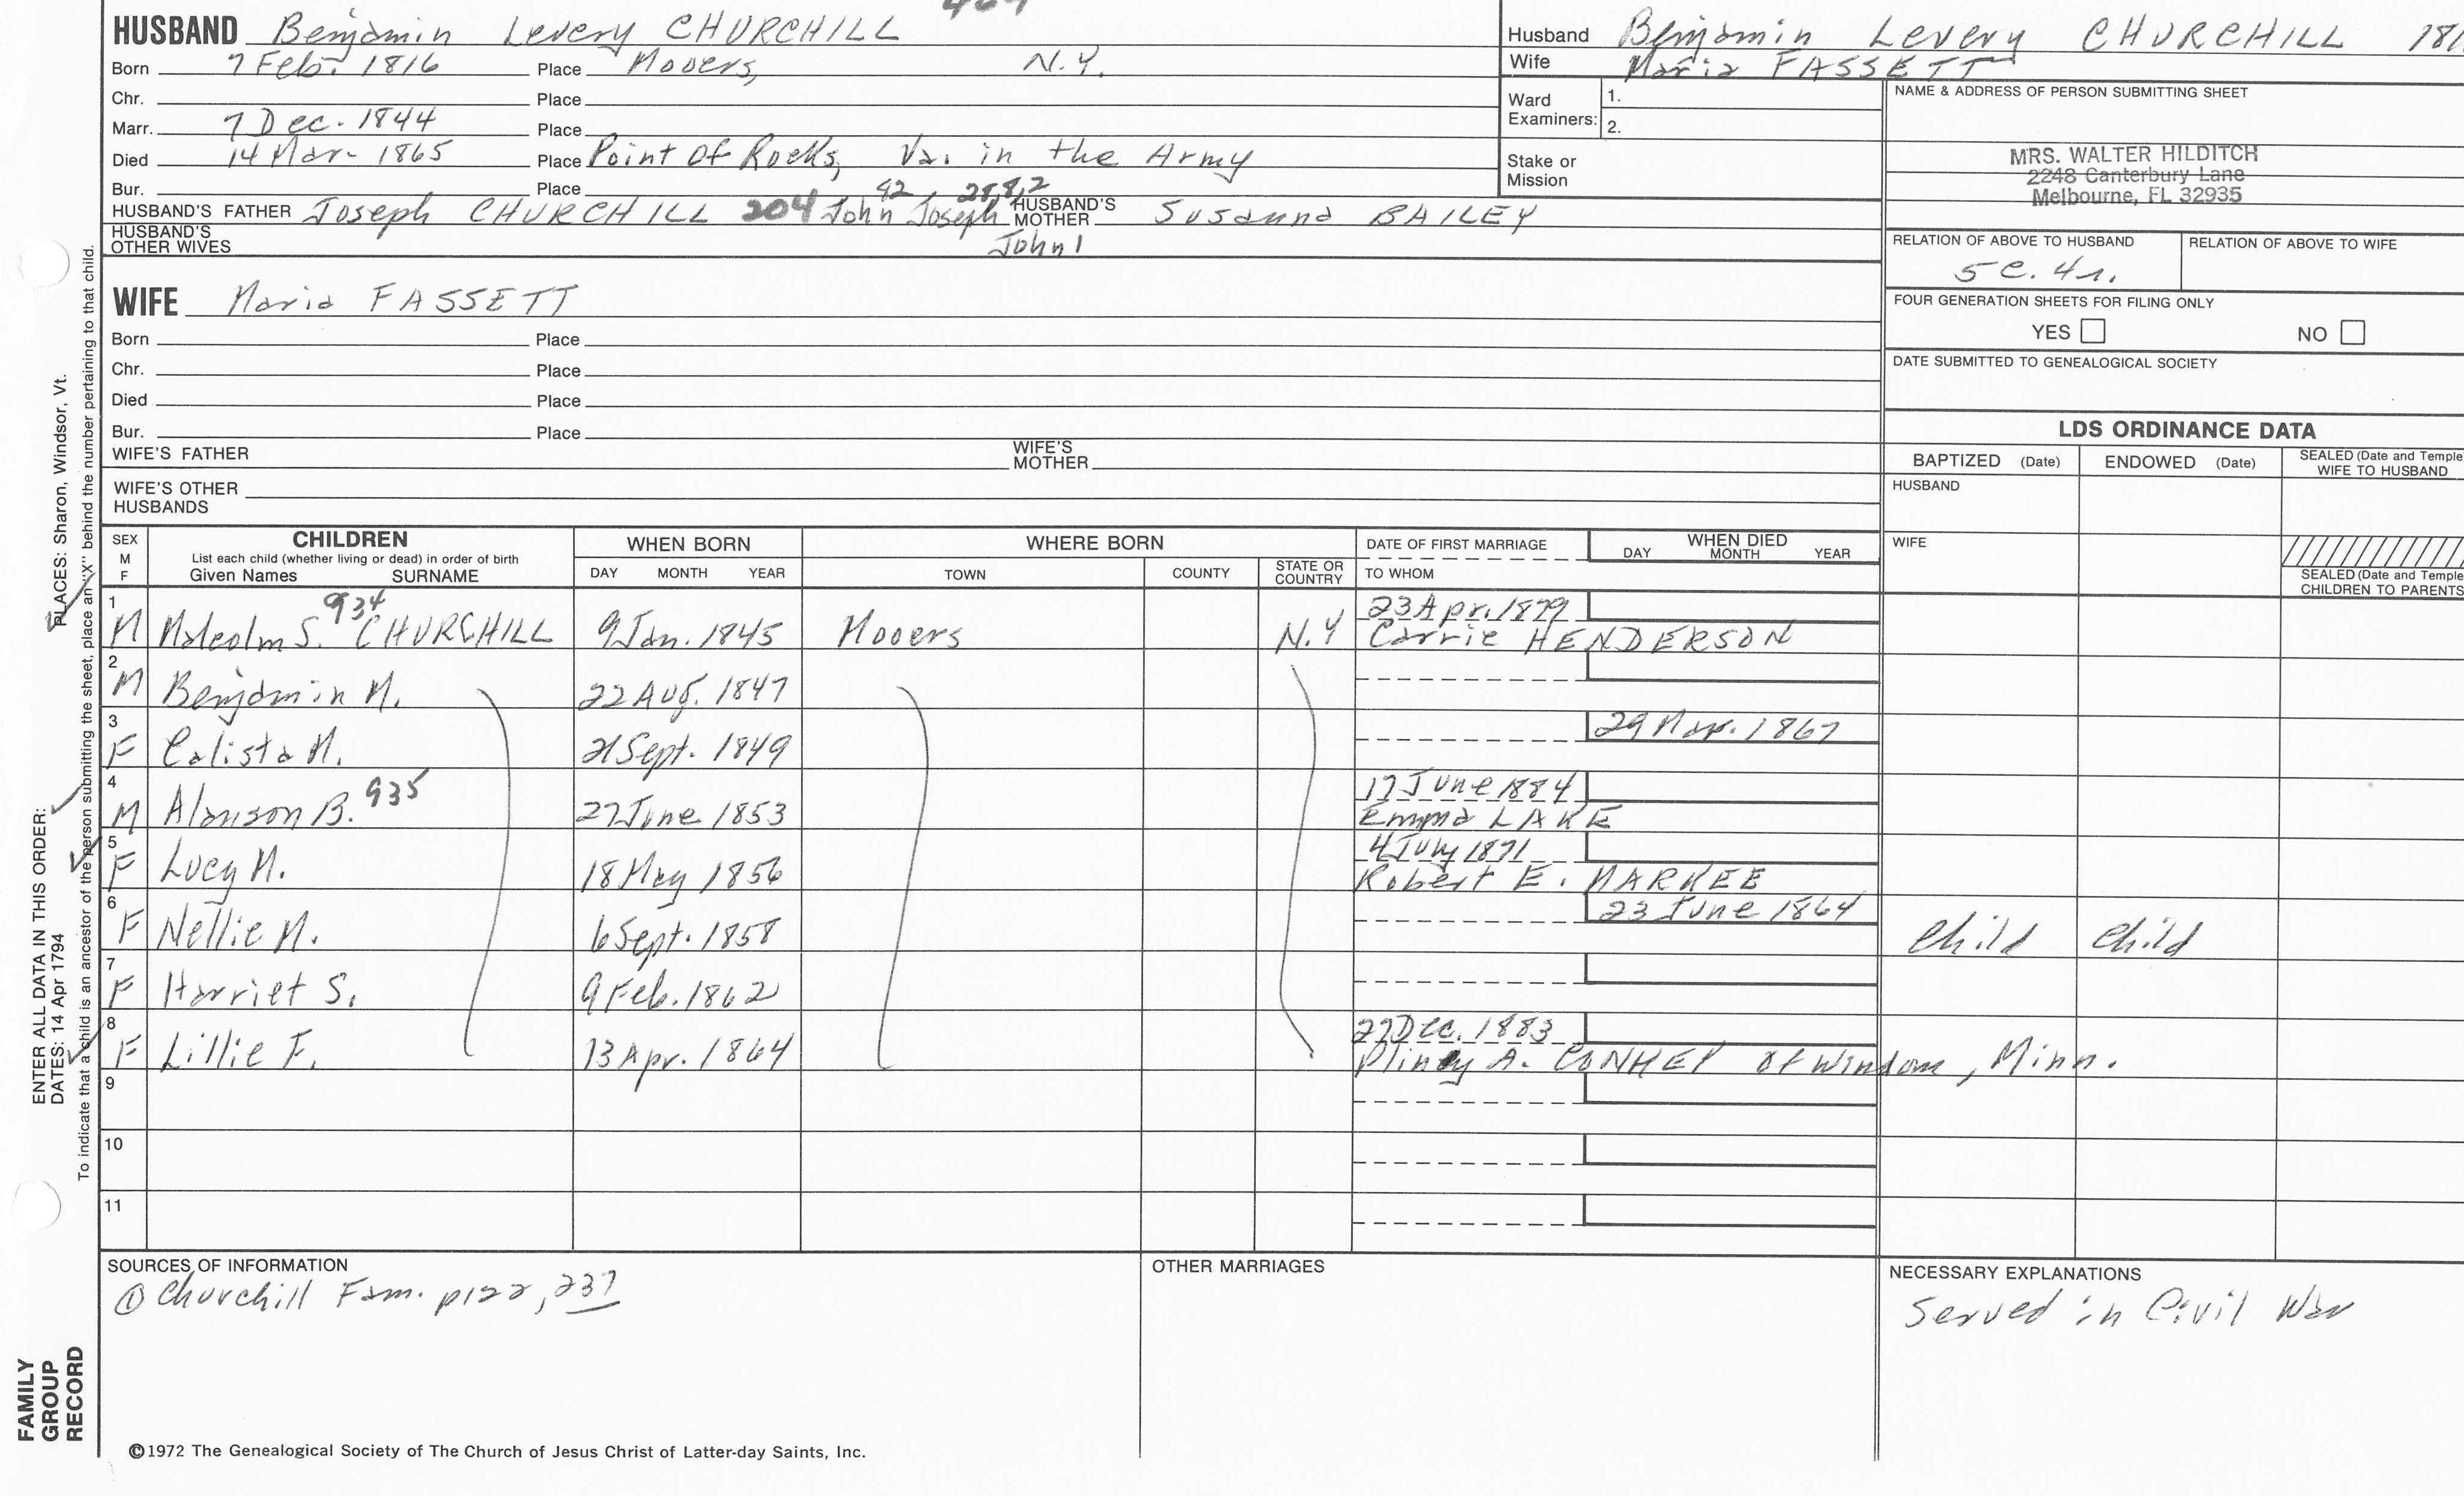 HUSBAND Benjamin Levery CHURCHILL
Born 7 Feb. 1816 Place Mooers, N.Y.
Chr. Place
Marr. 7 Dec. 1844 Place
Died 14 Mar. 1865 Place Point Of Rocks, Va. in the Army
Bur. Place
42 28,8,2
HUSBAND'S FATHER Joseph CHURCHILL 204 John Joseph HUSBAND'S MOTHER Susanna BAILEY
HUSBAND'S OTHER WIVES John 1
WIFE Maria FASSETT
Born Place
Chr. Place
Died Place
Bur. Place
WIFE'S FATHER WIFE'S MOTHER
WIFE'S OTHER HUSBANDS
Husband Benjamin Levery CHURCHILL 181
Wife Maria FASSETT
Ward Examiners: 1.
2.
Stake or Mission
NAME & ADDRESS OF PERSON SUBMITTING SHEET
MRS. WALTER HILDITCH
2248 Canterbury Lane
Melbourne, FL 32935
RELATION OF ABOVE TO HUSBAND RELATION OF ABOVE TO WIFE
5 C. 4 r.
FOUR GENERATION SHEETS FOR FILING ONLY
YES NO
DATE SUBMITTED TO GENEALOGICAL SOCIETY
LDS ORDINANCE DATA
BAPTIZED (Date) ENDOWED (Date) SEALED (Date and Temple WIFE TO HUSBAND
HUSBAND
WIFE
SEALED (Date and Temple CHILDREN TO PARENTS
SEX M F CHILDREN WHEN BORN WHERE BORN DATE OF FIRST MARRIAGE WHEN DIED
List each child (whether living or dead) in order of birth DAY MONTH YEAR
Given Names SURNAME DAY MONTH YEAR TOWN COUNTY STATE OR COUNTRY TO WHOM
1 934 23 Apr. 1879
M Malcolm S. CHURCHILL 9 Jan. 1845 Mooers N.Y Carrie HENDERSON
2
M Benjamin M. 22 Aug. 1847
3 29 Mar. 1867
F Calista M. 21 Sept. 1849
4 935 17 June 1884
M Alanson B. 27 June 1853 Emma LAKE
5 4 July 1871
F Lucy M. 18 May 1856 Robert E. MARKEE
6 23 June 1864
F Nellie M. 6 Sept. 1858 Child Child
7
F Harriet S. 9 Feb. 1862
8 27 Dec. 1883
F Lillie F. 13 Apr. 1864 Pliney A. CONHEY of Windom, Minn.
9
10
11
SOURCES OF INFORMATION
① Churchill Fam. p122, 237
OTHER MARRIAGES
NECESSARY EXPLANATIONS
Served in Civil War
©1972 The Genealogical Society of The Church of Jesus Christ of Latter-day Saints, Inc.
FAMILY
GROUP
RECORD
ENTER ALL DATA IN THIS ORDER:
DATES: 14 Apr 1794 PLACES: Sharon, Windsor, Vt.
To indicate that a child is an ancestor of the person submitting the sheet, place an "X" behind the number pertaining to that child.